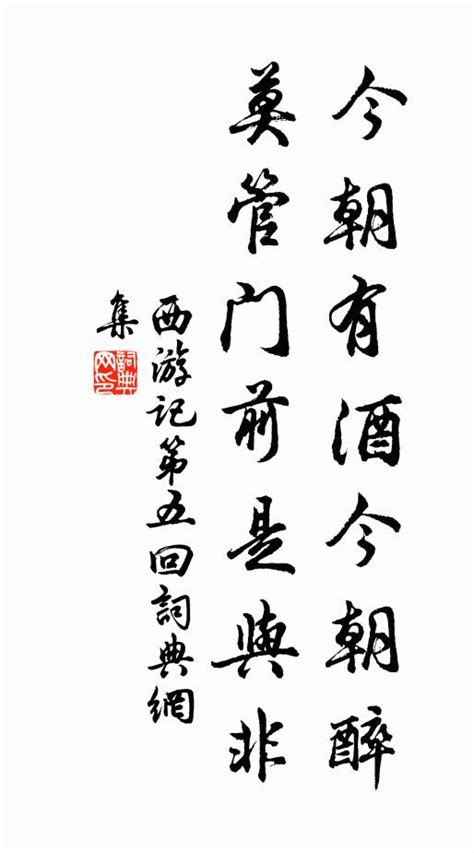 今朝有酒今朝醉
莫管門前是與非
西游記第五回詞典網
集
詞典
网印